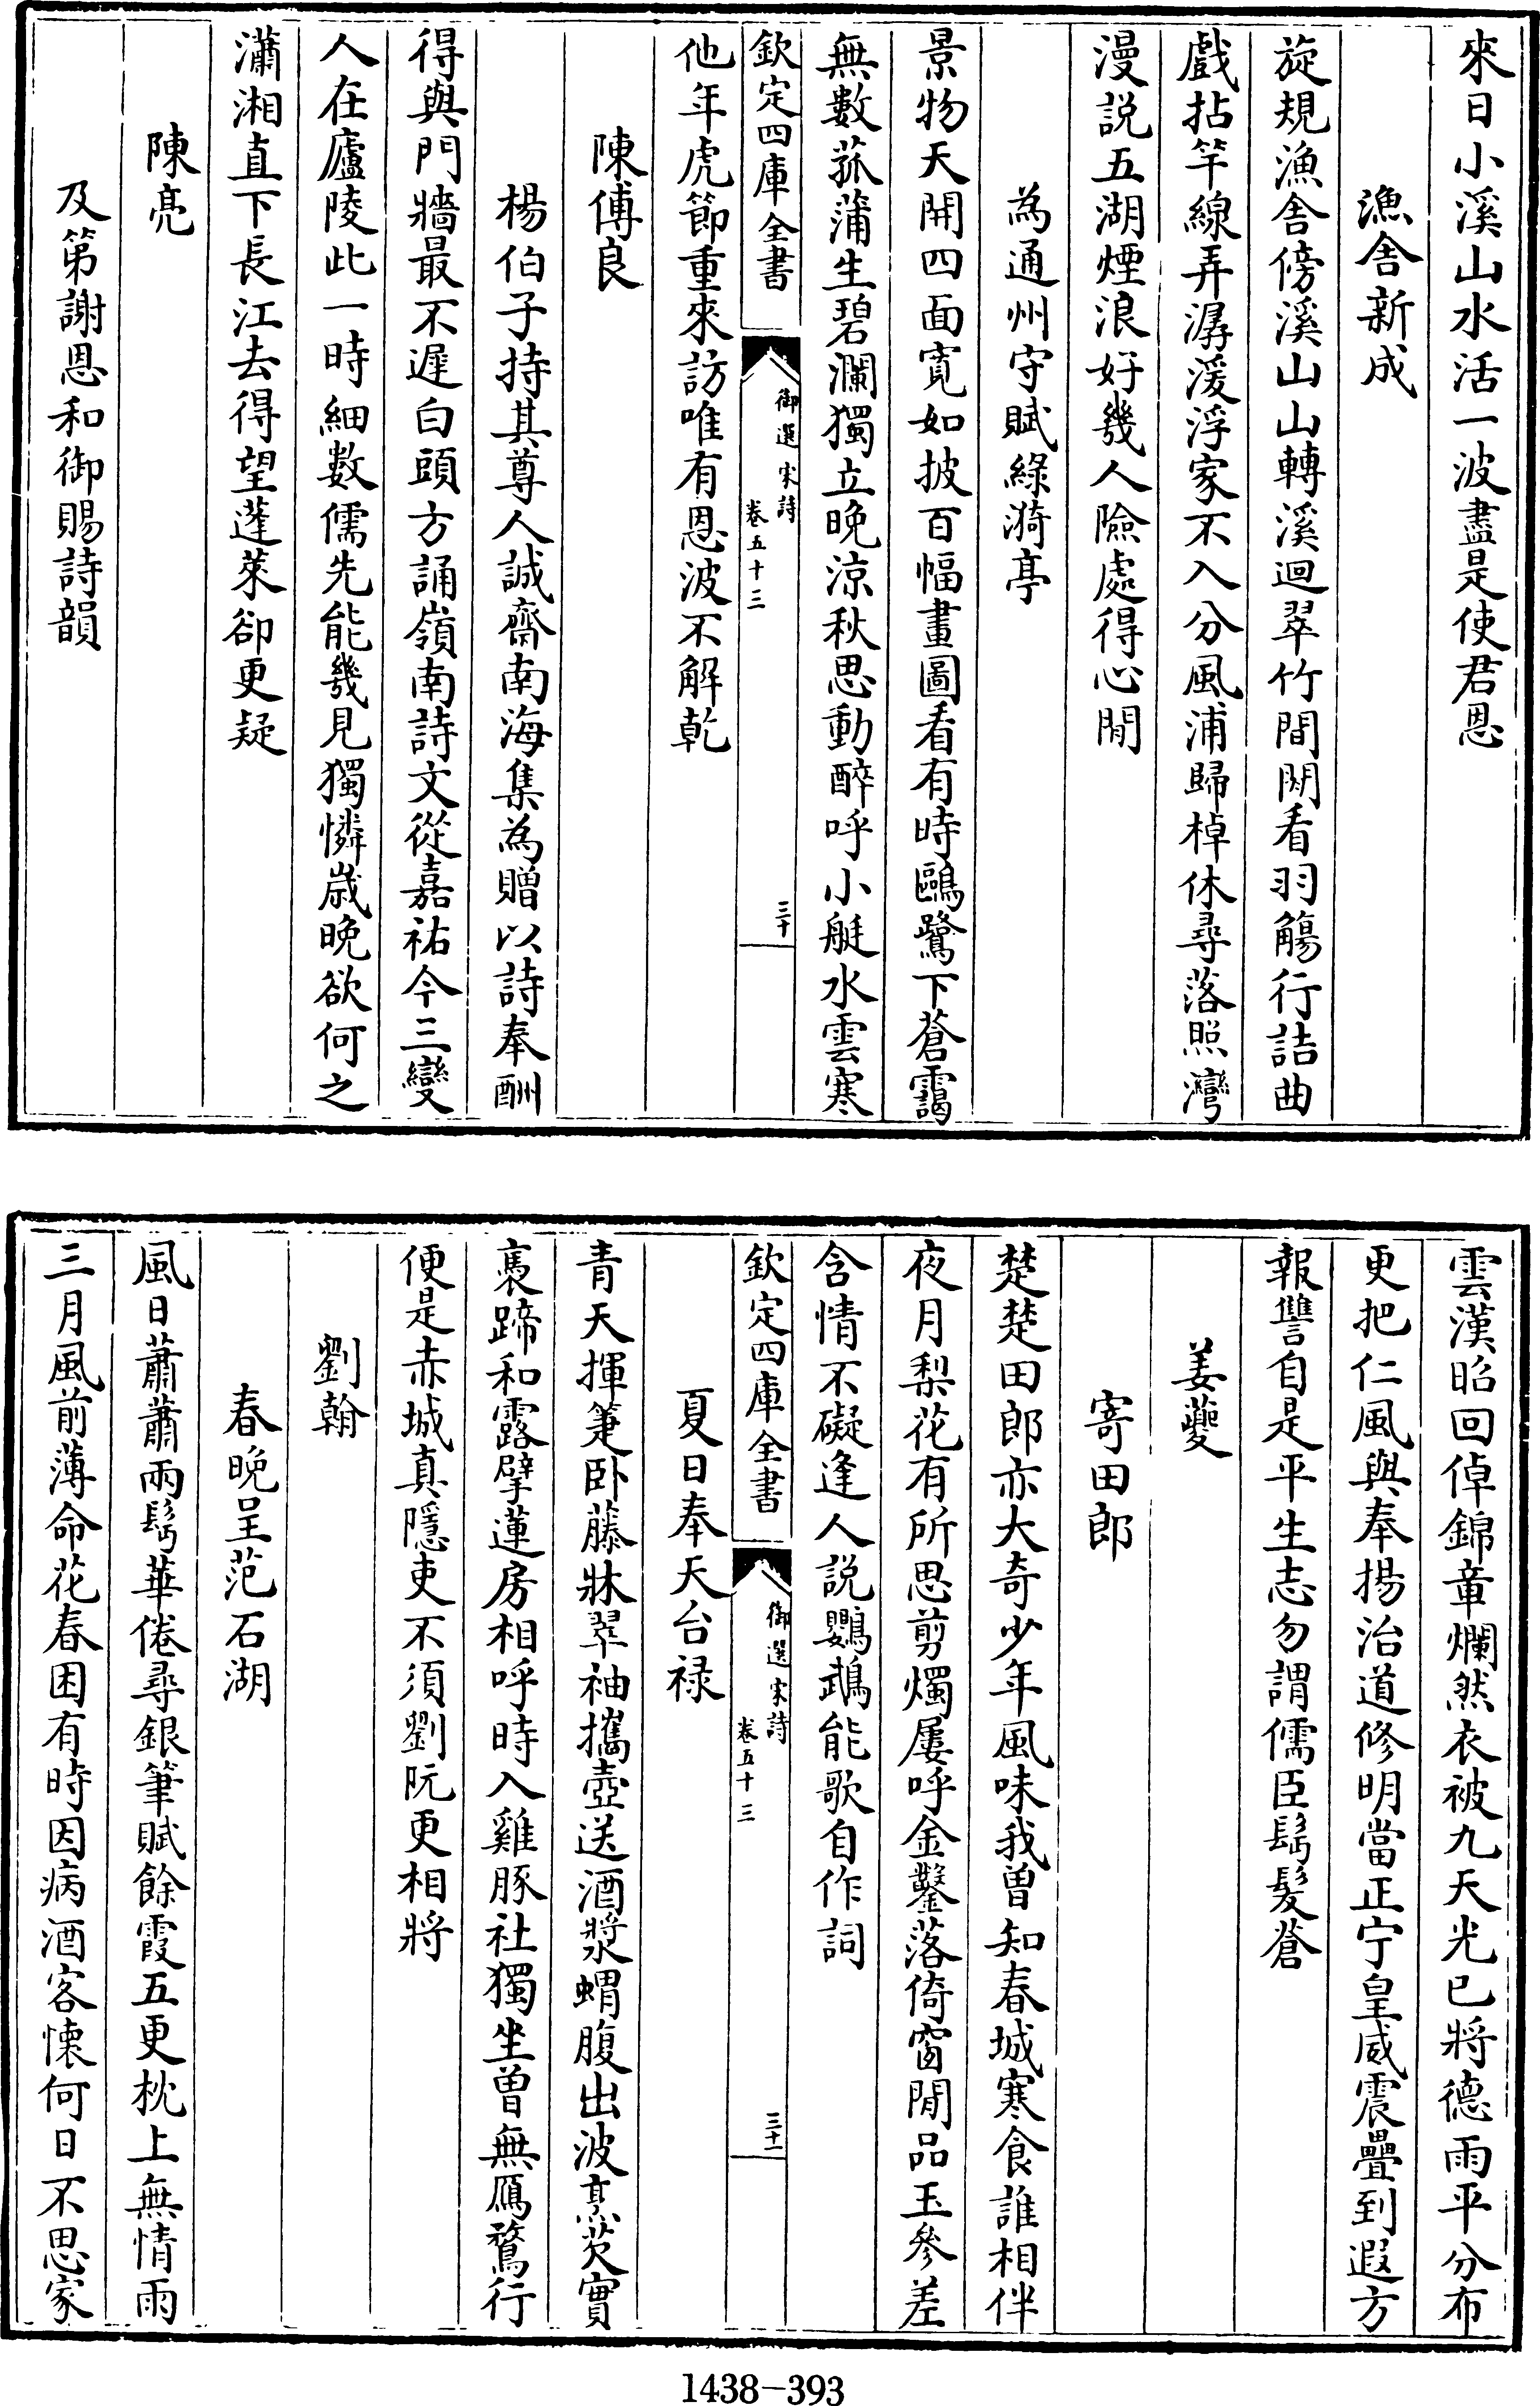 來日小溪山水活一波盡是使君恩
漁舎新成
旋規漁舎傍溪山山轉溪迴翠竹間閒看羽觴行詰曲
戲拈竿線弄潺湲浮家不入分風浦歸棹休尋落照灣
漫説五湖煙浪好幾人險處得心閒
為通州守賦綠漪亭
景物天開四面寛如披百幅畫圖看有時鷗鷺下蒼靄
無數菰蒲生碧瀾獨立晚涼秋思動醉呼小艇水雲寒
欽定四庫全書
御選宋詩
卷五十三
三十
他年虎節重來訪唯有恩波不解乾
陳傅良
楊伯子持其尊人誠齋南海集為贈以詩奉酬
得與門牆最不遲白頭方誦嶺南詩文從嘉祐今三變
人在廬陵此一時細數儒先能幾見獨憐歲晚欲何之
瀟湘直下長江去得望蓬萊卻更疑
陳亮
及第謝恩和御賜詩韻
雲漢昭回倬錦章爛然衣被九天光已將德雨平分布
更把仁風與奉揚治道修明當正宁皇威震疊到遐方
報讐自是平生志勿謂儒臣鬢髮蒼
姜夔
寄田郎
楚楚田郎亦大奇少年風味我曽知春城寒食誰相伴
夜月梨花有所思剪燭屢呼金鑿落倚窗閒品玉參差
含情不礙逢人説鸚鵡能歌自作詞
欽定四庫全書
御選宋詩
卷五十三
三十一
夏日奉天台禄
青天揮箑卧藤牀翠袖攜壺送酒漿蝟腹出波烹芡實
褭蹄和露擘蓮房相呼時入雞豚社獨坐曽無鴈鶩行
便是赤城真隱吏不須劉阮更相將
劉翰
春晚呈范石湖
風日蕭蕭兩鬢華倦尋銀筆賦餘霞五更枕上無情雨
三月風前薄命花春困有時因病酒客懷何日不思家
1438-393